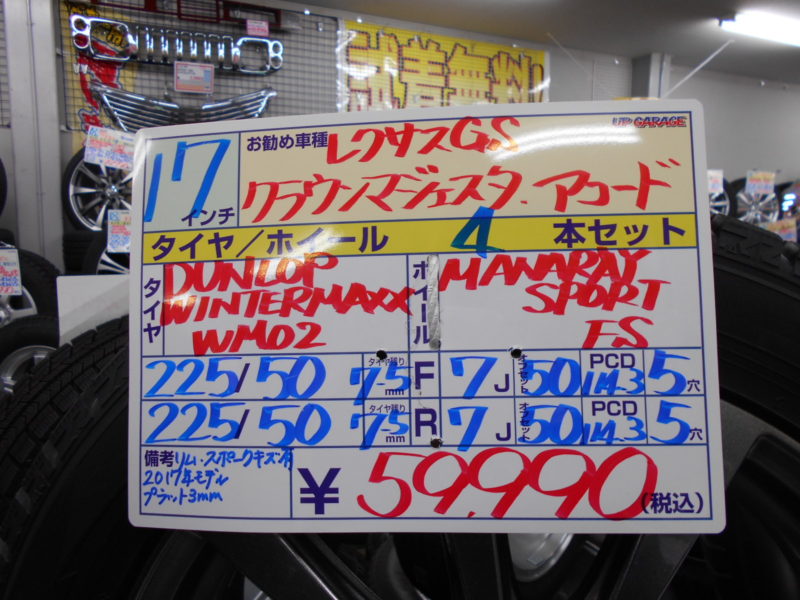 試着無料!
UP GARAGE
17インチ
お勧め車種 レクサスGS
クラウンマジェスタ. アコード
タイヤ/ホイール 4 本セット
タイヤ DUNLOP WINTERMAXX WM02
ホイール MANARAY SPORT FS
225/50 タイヤ残り 7-5mm F 7J オフセット 50 PCD 114.3 5穴
225/50 タイヤ残り 7-5mm R 7J オフセット 50 PCD 114.3 5穴
備考 リム・スポークキズ有
2017年モデル
プラット3mm
¥59,990(税込)